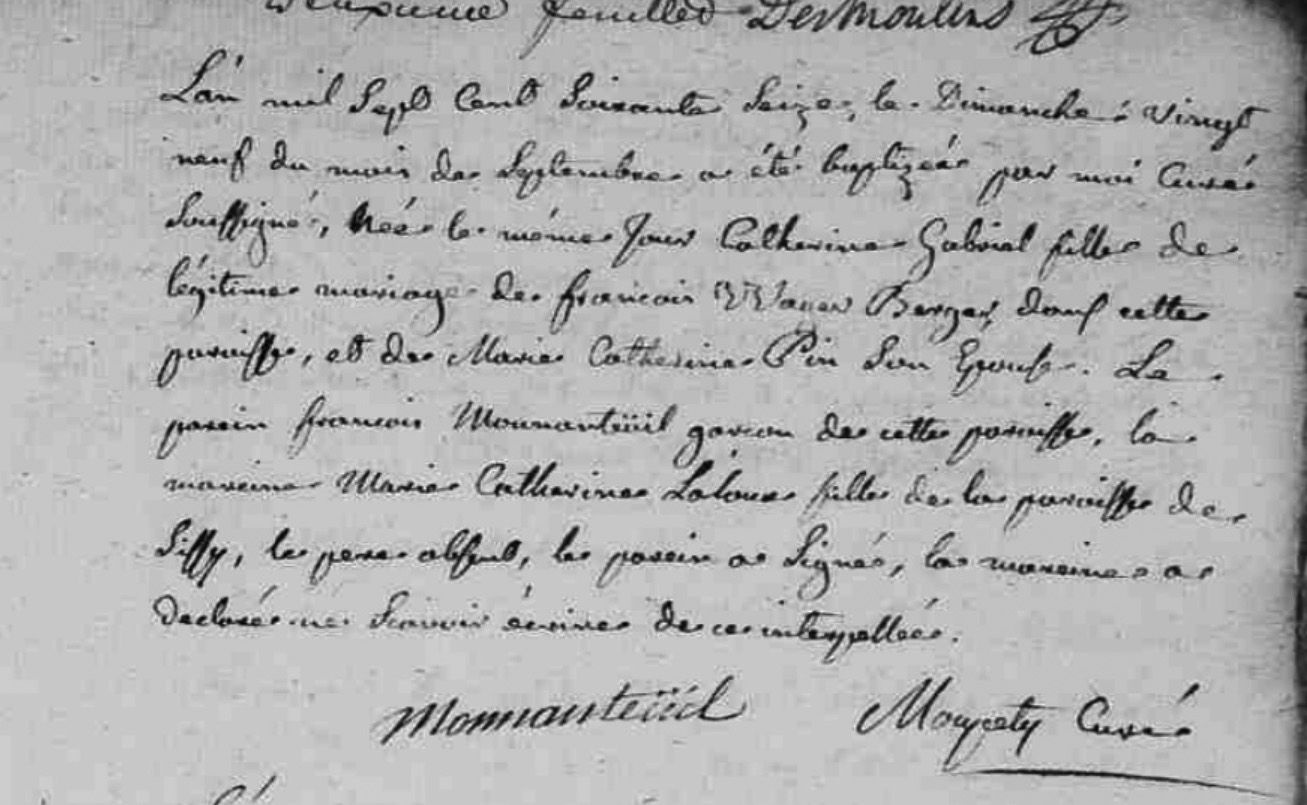 feuillet Desmoulins
L'an mil Sept Cent Soixante Seize, le Dimanche vingt
neuf du mois de Septembre a été baptizée par moi Curé
Soussigné, Née le même Jour Catherine Gabriel fille de
légitime mariage de francois Berger, de cette
paroisse, et de Marie Catherine Pin Son Epouse. Le
parein francois Monnanteüil garcon de cette paroisse, la
mareine Marie Catherine Laloue fille de la paroisse de
Sissy, le pere absent, le parein a Signé, la mareine a
declaré ne Scavoir écrire de ce interpellée.
Monnanteüil Curé